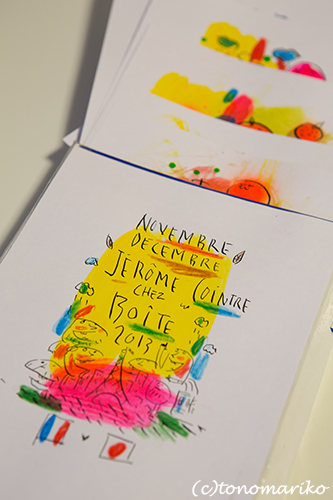 NOVEMBRE
DECEMBRE
JERÔME COINTRE
CHEZ
BOÎTE
2013
(c)tonomariko